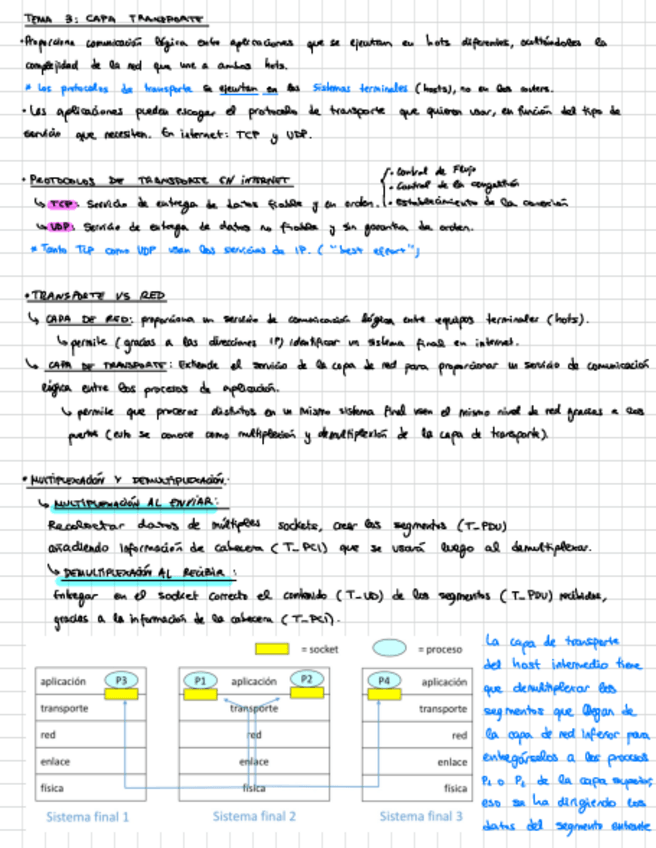 TEMA 3: CAPA TRANSPORTE
• Proporciona comunicación lógica entre aplicaciones que se ejecutan en hots diferentes, ocultándoles la
complejidad de la red que une a ambos hots.
* Los protocolos de transporte se ejecutan en los sistemas terminales (hosts), no en los routers.
• Las aplicaciones pueden escoger el protocolo de transporte que quieren usar, en función del tipo de
servicio que necesiten. En internet: TCP y UDP.
• PROTOCOLOS DE TRANSPORTE EN INTERNET
• Control de Flujo
• Control de la congestión
• Establecimiento de la conexión
↳ TCP: Servicio de entrega de datos fiable y en orden.
↳ UDP: Servicio de entrega de datos no fiable y sin garantía de orden.
* Tanto TCP como UDP usan los servicios de IP. ("best effort")
• TRANSPORTE VS RED
↳ CAPA DE RED: proporciona un servicio de comunicación lógica entre equipos terminales (hots).
↳ permite (gracias a las direcciones IP) identificar un sistema final en internet.
↳ CAPA DE TRANSPORTE: Extiende el servicio de la capa de red para proporcionar un servicio de comunicación
lógica entre los procesos de aplicación.
↳ permite que procesos distintos en un mismo sistema final usen el mismo nivel de red gracias a los
puertos (esto se conoce como multiplexión y demultiplexión de la capa de transporte).
• MULTIPLEXACIÓN Y DEMULTIPLEXACIÓN:
↳ MULTIPLEXACIÓN AL ENVIAR:
Recolectar datos de múltiples sockets, crear los segmentos (T_PDU)
añadiendo información de cabecera (T_PCI) que se usará luego al demultiplexar.
↳ DEMULTIPLEXACIÓN AL RECIBIR:
Entregar en el socket correcto el contenido (T_UD) de los segmentos (T_PDU) recibidos,
gracias a la información de la cabecera (T_PCI).
= socket
= proceso
aplicación P3
transporte
red
enlace
física
Sistema final 1
P1 aplicación P2
transporte
red
enlace
física
Sistema final 2
P4 aplicación
transporte
red
enlace
física
Sistema final 3
La capa de transporte
del host intermedio tiene
que demultiplexar los
segmentos que llegan de
la capa de red inferior para
entregárselos a los procesos
P1 o P2 de la capa superior,
eso se ha dirigiendo los
datos del segmento entrante